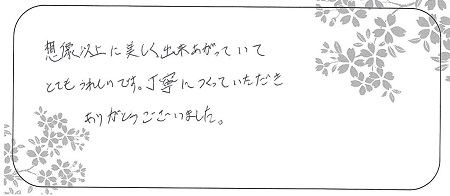 想像以上に美しく出来あがっていて
とてもうれしいです。丁寧につくっていただき
ありがとうございました。